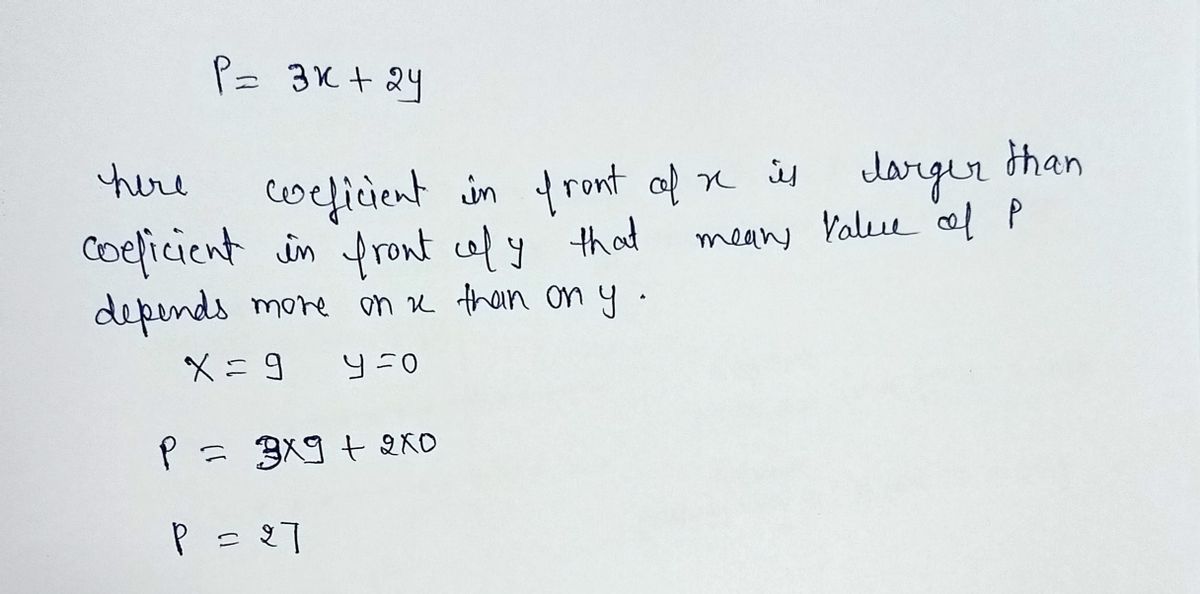 P = 3x + 2y
here coeficient in front of x is larger than
coeficient in front of y that means Value of P
depends more on x than on y.
x = 9 y = 0
P = 3x9 + 2x0
P = 27